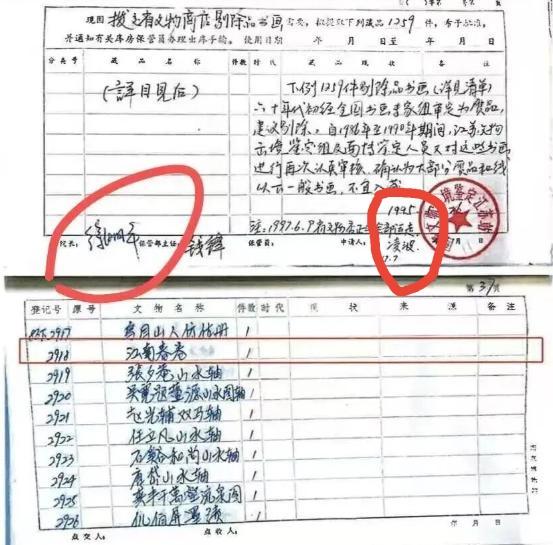 现因 拨交省文物商店剔除品书画 需要,拟提取下列藏品1259件,希予批准,
并通知有关库房保管员办理出库手续。 使用日期 年 月 日至 年 月 日
分类号 藏品名称 件数 时代 藏品现状 备注
(详目见后)
下列1259件剔除品书画(详见清单)
六十年代初经全国书画专家组审定为
建议剔除。自1986年至1990年期间,江苏文物
出境鉴定组及南博鉴定人员又对这些书画
进行再次认真审核,确认为大部分
以下一般书画,不宜入藏
1997.
院长: 徐湖平 保管部主任: 钱锋 保管员: 申请人: 凌波
注:1997.6.9
7.7
第 37 页
登记号 原号 文物名称 件数 时代 现状 来源 备注
2917 1
2918 江南春卷 1
2919 张夕庵山水轴 1
2920 山水图轴 1
2921 赵光辅双马轴 1
2922 任立凡山水轴 1
2923 石谿和尚山水轴 1
2924 唐岱山水轴 1
2925 1
2926 仇伯屏墨 1
点交人: 点收人: 年 月 日